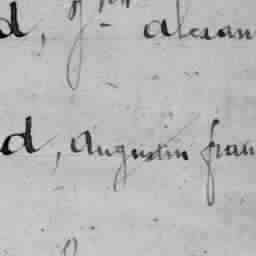 d, alexan
d, augustin fran